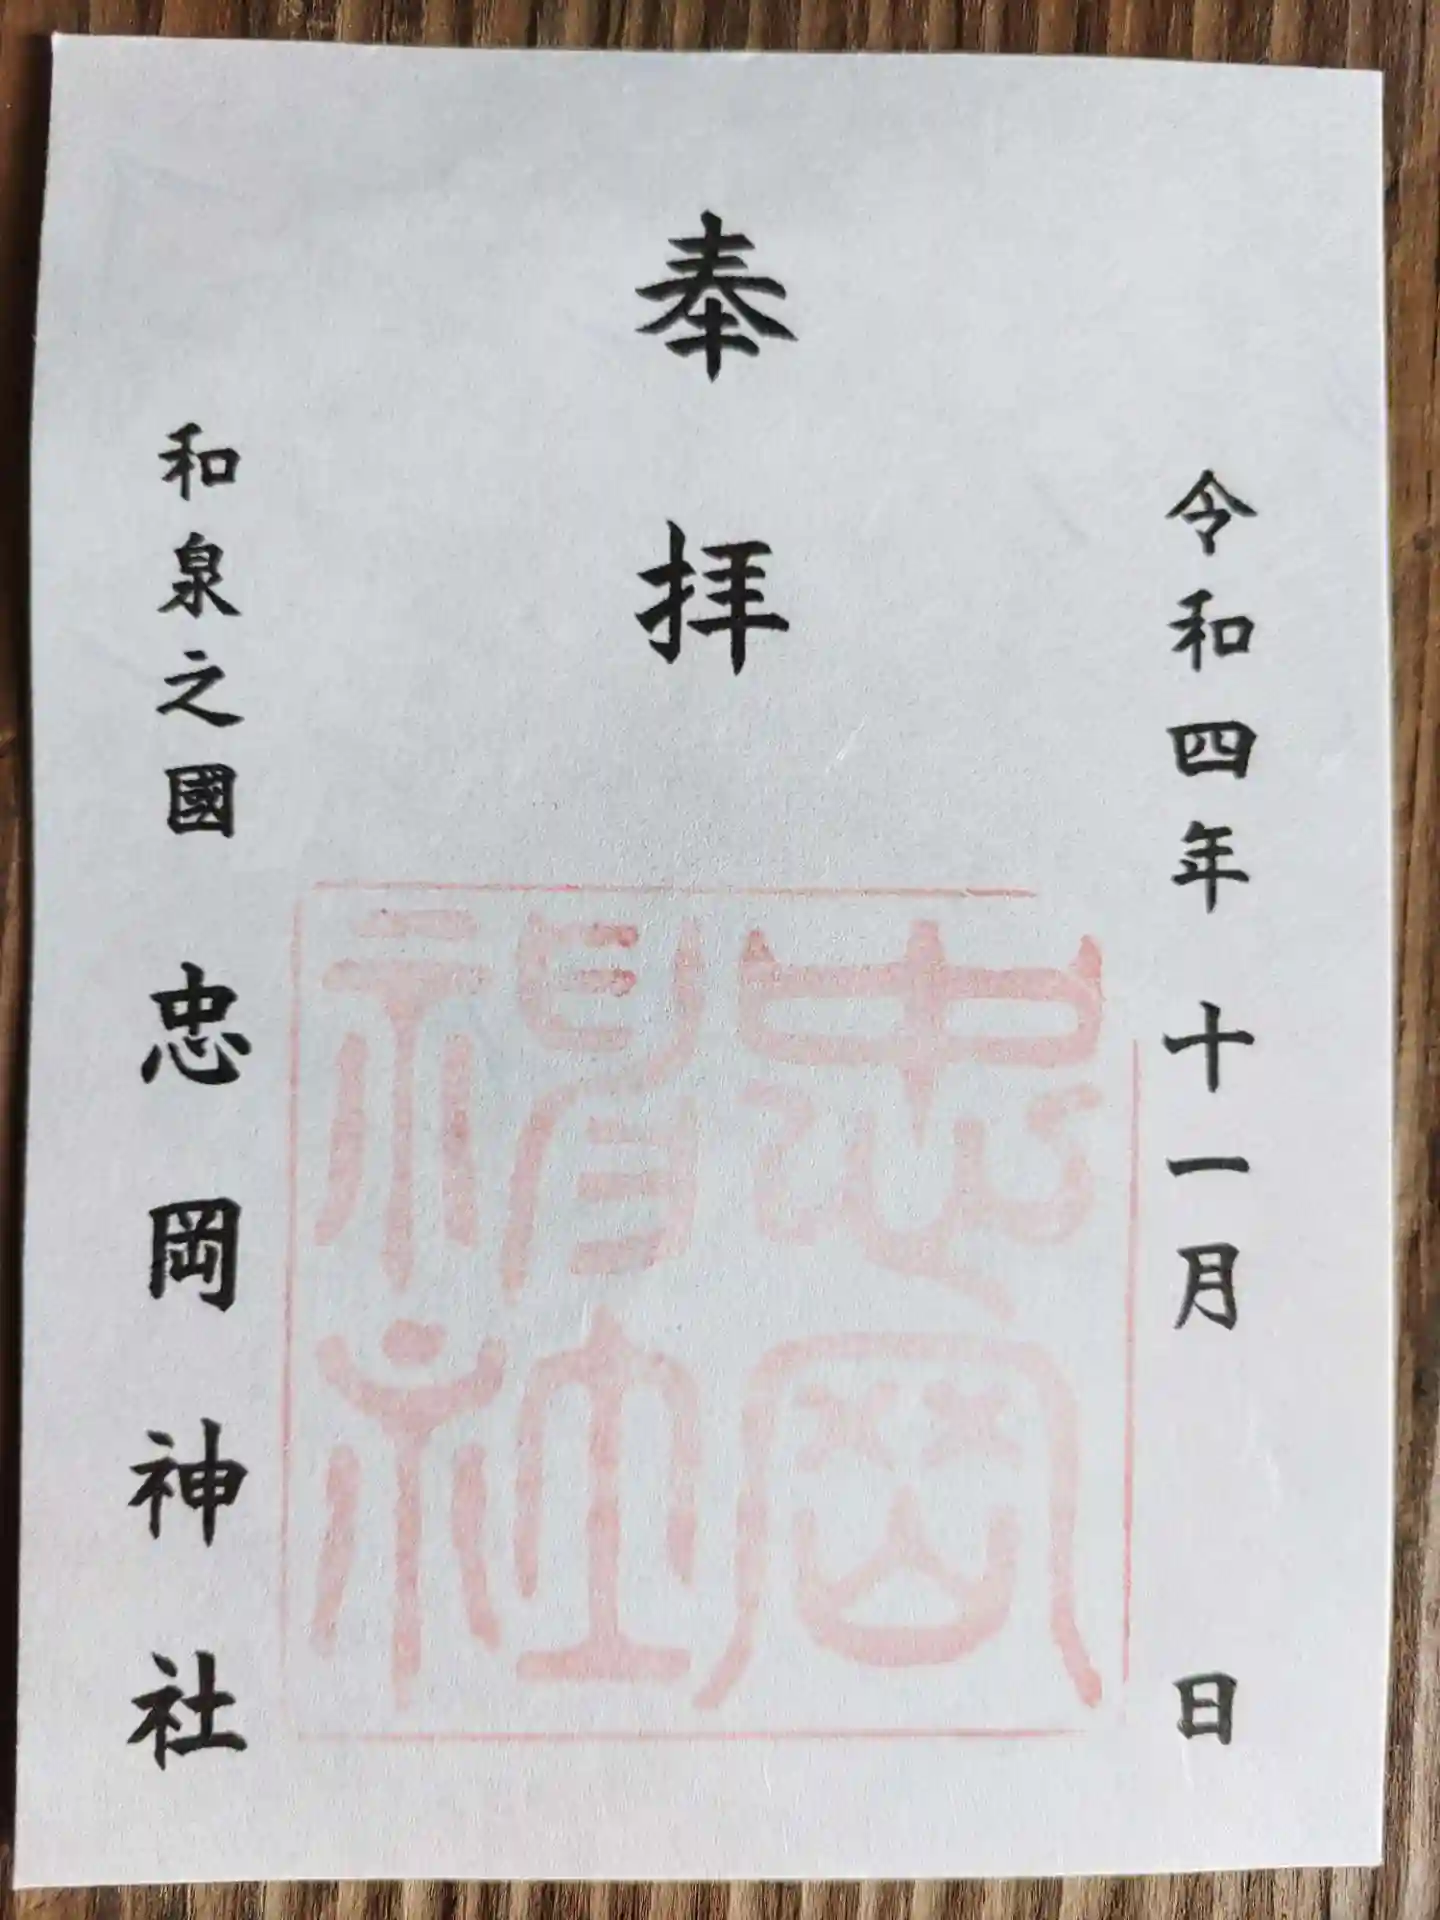 令和四年 十一月 日
奉拝
和泉之國 忠岡神社
忠岡
神社